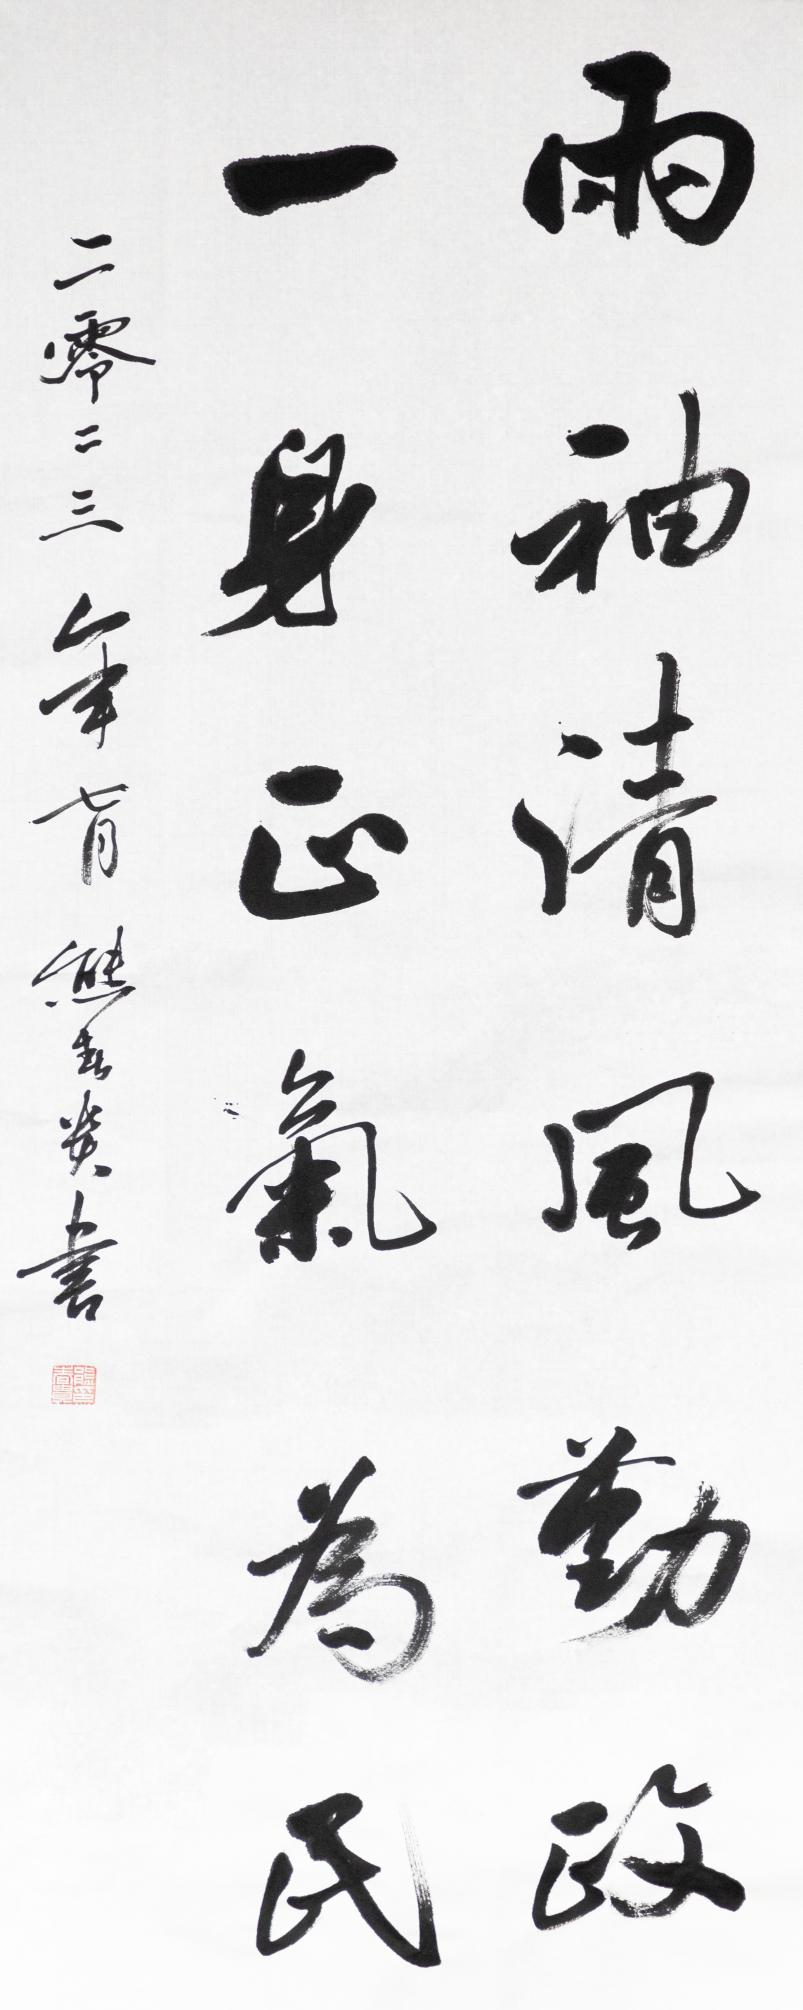 兩袖清風勤政
一身正氣為民
二零二三年七月熊春貴書